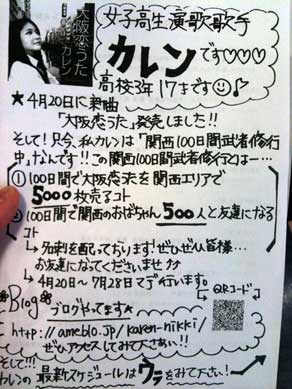 大阪恋うた
カレン
女子高生演歌歌手
カレンです♡♡♡
高校3年 17才です☺♪
★4月20日に新曲
「大阪恋うた」発売しました!!
そして!只今、私カレンは "関西100日間武者修行
中"なんです!!この関西100日間武者修行とは…
①100日間で大阪恋うたを関西エリアで
5000枚売るコト
②100日間で関西のおばちゃん500人と友達になる
コト
→名刺を配っております!ぜひぜひ皆様…
お友達になってくださいませ
→4月20日〜7月28日まで行います。
Blog
ブログやってます★
QRコード
http://ameblo.jp/karen-nikki/
ぜひアクセスしてみて下さあい!!
そして!!!
カレンの最新スケジュールはウラをみて下さい!